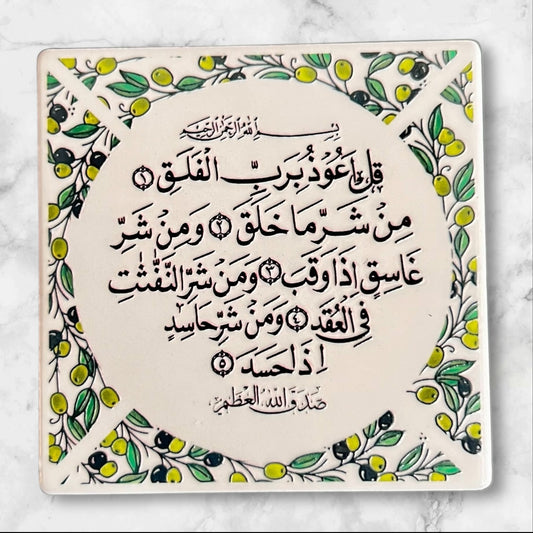 بِسْمِ اللهِ الرَّحْمٰنِ الرَّحِيْمِ
قُلْ اَعُوْذُ بِرَبِّ الْفَلَقِ ۝١
مِنْ شَرِّ مَا خَلَقَ ۝٢ وَمِنْ شَرِّ
غَاسِقٍ اِذَا وَقَبَ ۝٣ وَمِنْ شَرِّ النَّفّٰثٰتِ
فِي الْعُقَدِ ۝٤ وَمِنْ شَرِّ حَاسِدٍ
اِذَا حَسَدَ ۝٥
صَدَقَ اللهُ الْعَظِيْم